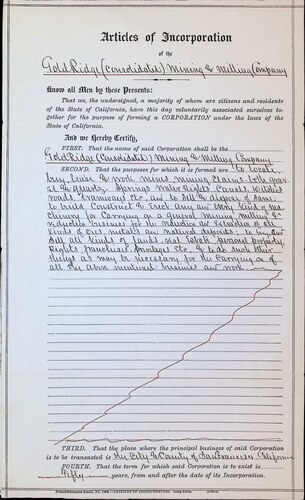 Articles of Incorporation
of the
Gold Ridge (Consolidated) Mining & Milling Company
Know all Men by these Presents:
That we, the undersigned, a majority of whom are citizens and residents
of the State of California, have this day voluntarily associated ourselves to-
gether for the purpose of forming a CORPORATION under the laws of the
State of California.
And we Hereby Certify,
FIRST. That the name of said Corporation shall be the
Gold Ridge (Consolidated) Mining & Milling Company
SECOND. That the purposes for which it is formed are to locate,
buy, lease & work mines, mining claims both
Springs Water Rights Canals, Ditches
roads Tramways etc, and to sell & dispose of same.
to build Construct & Erect
for Carrying on a General Mining, Milling &
reduction business for the reduction and Extraction of all
kinds of ores metals and mineral deposits; to buy and
Sell all kinds of lands, real Estate personal property,
Rights, franchises, privileges etc, & to do such other
things as may be necessary for the Carrying on of
all the above mentioned business and work
THIRD. That the place where the principal business of said Corporation
is to be transacted is the City & County of San Francisco, California
FOURTH. That the term for which said Corporation is to exist is
Fifty years, from and after the date of its Incorporation.